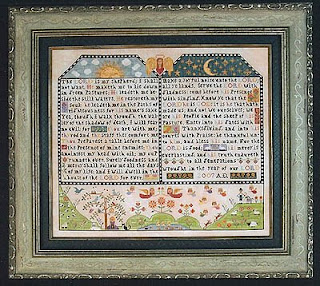 The LORD is my shepherd; I shall
not want. He maketh me to lie down
in green Pastures: He leadeth me be
side the still waters. He restoreth my
soul: He leadeth me in the Paths of
righteousness for His name's sake.
Yea, though I walk through the valley
of the shadow of death, I will fear
no evil: for art with me
thy rod and thy staff they comfort me
Thou Preparest a table before me in
the Presence of mine enemies: Thou
anointest my head with oil; my cup
runneth over. Surely goodness and
mercy shall follow me all the days
of my life: and I will dwell in the
house of the LORD for ever
Make a joyful noise unto the LORD
all ye lands. Serve the LORD with
gladness: come before His
with singing. Know ye that the
LORD he is GOD: it is he that hath
made us, and not we ourselves; we
are his People and the sheep of his
Pasture. Enter into his Gates with
Thanksgiving, and into
with Praise: be thankful unto
him, and bless his name. For the
LORD is good; mercy is
everlasting; and his truth endureth
to all Generations
Wrought in the year of our LORD
2007 A.D.